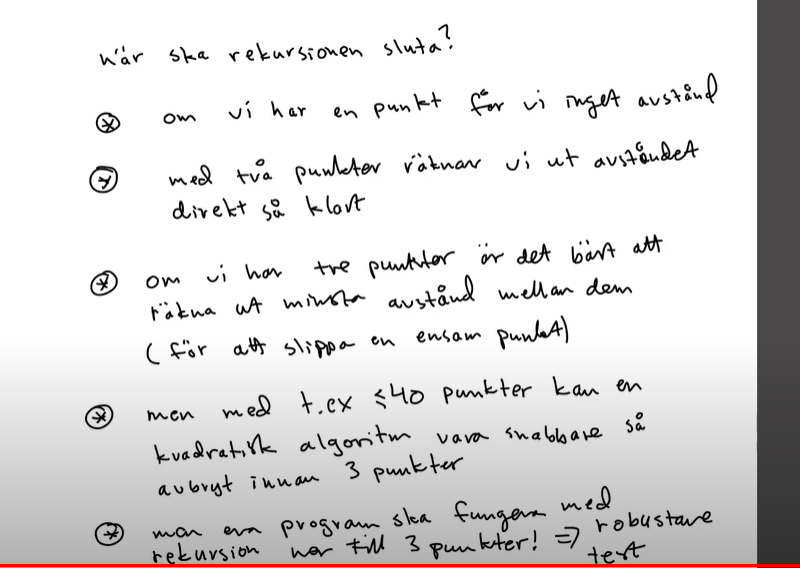 när ska rekursionen sluta?
om vi har en punkt får vi inget avstånd
med två punkter räknar vi ut avståndet
direkt så klart
om vi har tre punkter är det bäst att
räkna ut minsta avstånd mellan dem
(för att slippa en ensam punkt)
men med t.ex ≤40 punkter kan en
kvadratisk algoritm vara snabbare så
avbryt innan 3 punkter
men era program ska fungera med
rekursion ner till 3 punkter! => robustare
test